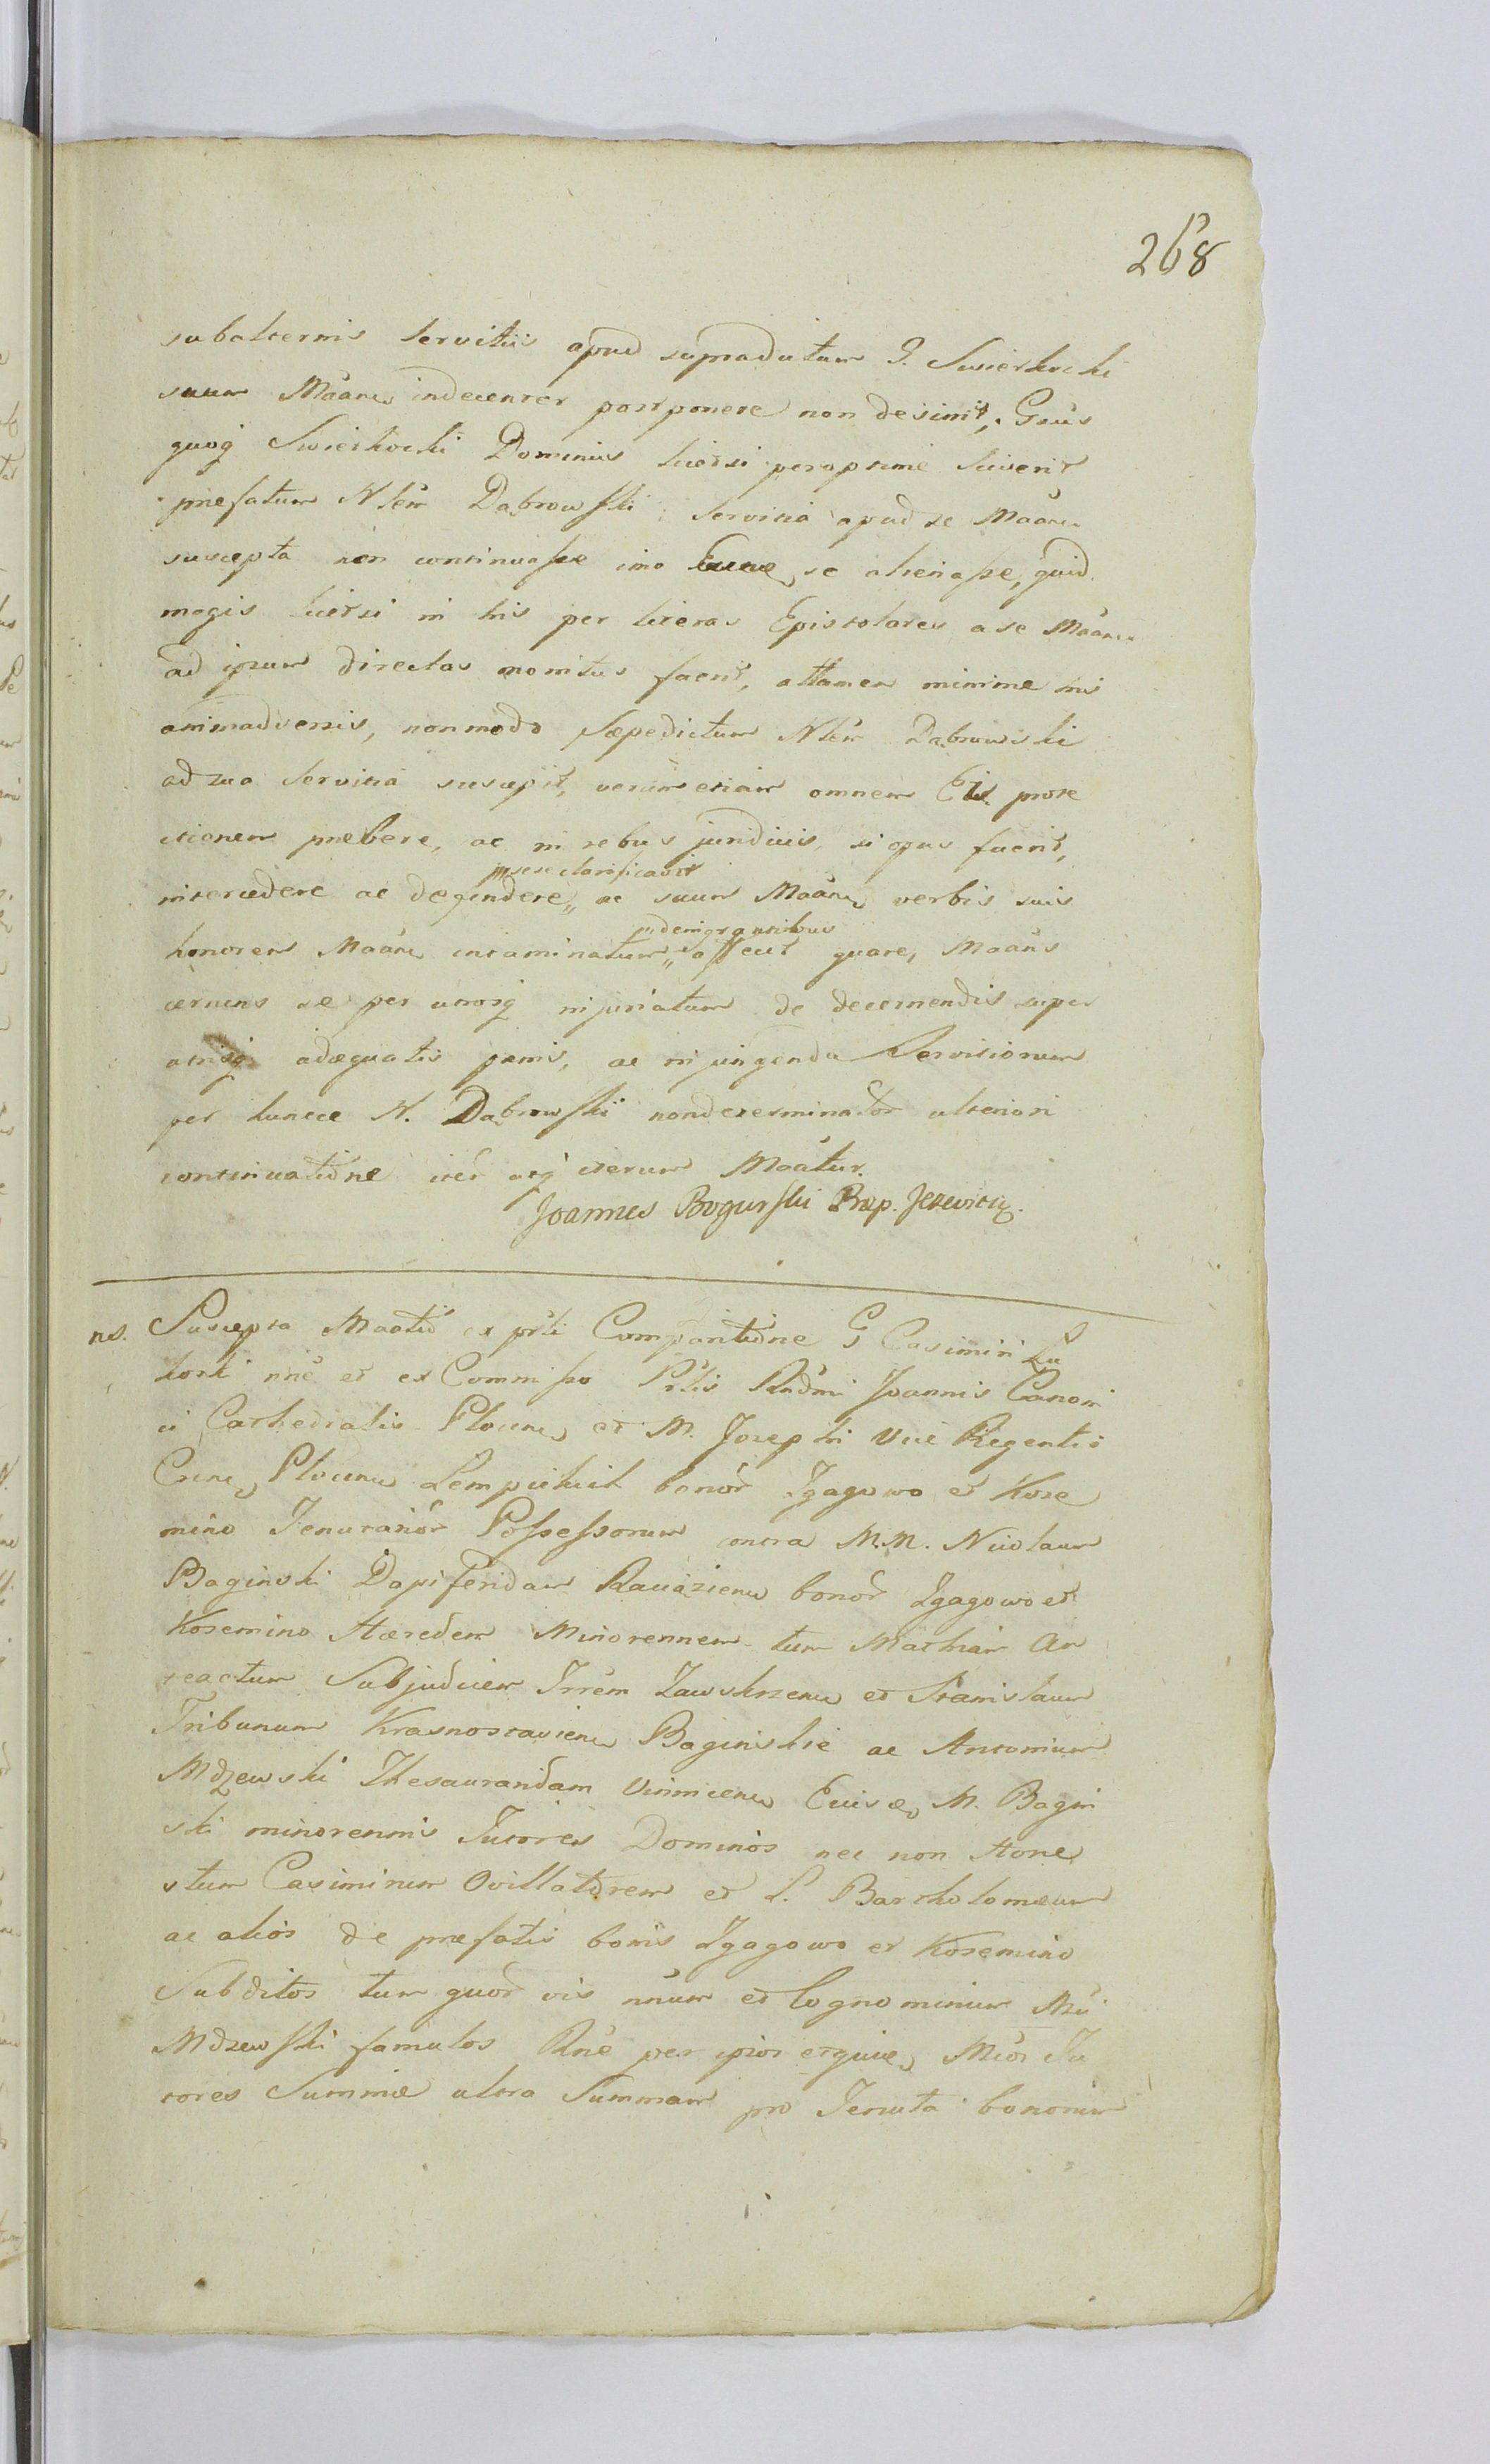 268
subalternis servitiis apud supradictum G. Swierkocki
suum Maãne indecenter postponere non desinit, Gsus
quoq Swierkocki Dominus licetsi peroptime sciverit
præfatum Nlem Dąbrowski servitia apud se Maãn
suscepta non continuasse imo se alienasse, quid
magis licetsi in his per literas Epistolares a se Maãn
ad ipsum directas monitus fuerit, attamen minime his
animadversis, non modo Sæpedictum Nlem Dąbrowski
ad sua servitia suscepit, verum etiam omnem Ei prote
ctionem præbere, ac in rebus juridicis, si opus fuerit,
„sese clarificavit
intercedere ac defendere„ ac suum Maãn verbis suis
„denigrantibus
honorem Maãn intaminatum„ affecit quare, Maãns
cernens se per utrosq injuriatum de decernendis super
utrisq adæquatis pænis, ac injungenda Servitiorum
per hunce N. Dąbrowski nondeterminator ulteriori
continuatione iter atq iterum Maãtur.
Joannes Bogurski Præp. Jezevicy.
ns. Suscepta Maatio ex prli Comparitione G Casimiri Lu
et ex Commisso Prlis Rndmi Joannis Canoni
ci Cathedralis Plocen, et M. Josephi Vice Regentis
Plocen Lempickich bonor Zgagowo et Kose
mino Tenutarior Possessorum contra M.M. Nicolaum
Baginski Dapiferidam Ravazien bonor Zgagowo et
Kosemino Hæredem Minorennem tum Mathiam An
reactum Subjudicem Trrem Zawskrzen et Stanislaum
Tribunum Krasnostavien Baginskie ac Antonium
Mdzewski Thesauraridam Vinnicen M. Bagin
ski minorennis Tutores Dominos nec non Hone
stum Casimirum Ovillatorem et L. Bartholomæum
ac alios de præfatis bonis Zgagowo et Kosemino
Subditos tum quor vis nnum et Cognominum Mci
Mdzewski famulos Rne per ipsos Mcos Tu
tores Summæ ultra Summam pro Tenuta bonorum